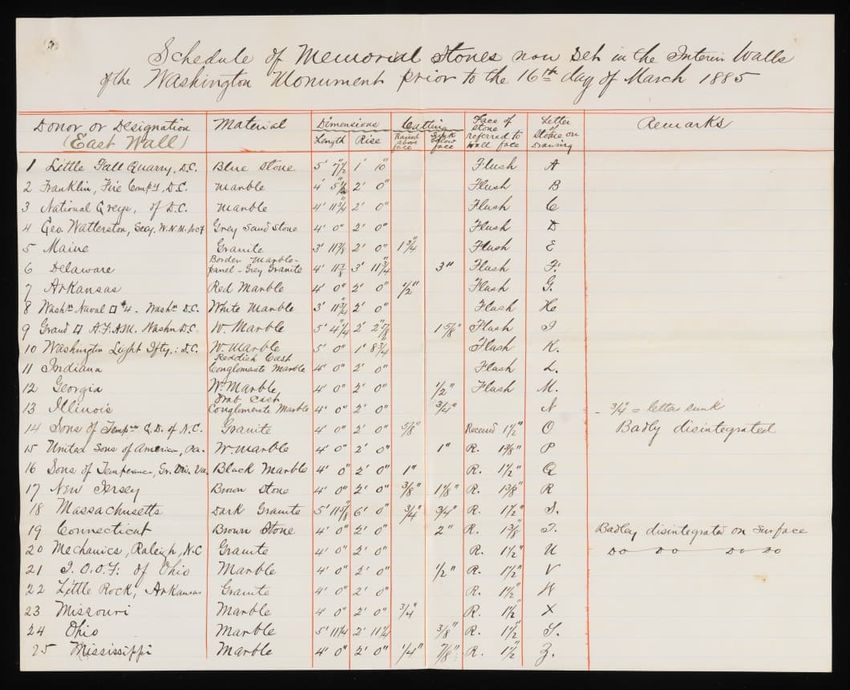 Schedule of Memorial Stones now set in the Interior Walls
of the Washington Monument prior to the 16th day of March 1885
Donor or Designation (East Wall) Material Dimensions Length Rise Cutting Raised above face Sunk below face Face of Stone referred to Wall face Letter of Stone on Drawing Remarks
1 Little Fall Quarry, D.C. Blue Stone 5' 7½" 1' 10" Flush A
2 Franklin, Fire Comp'y, D.C. Marble 4' 2' 0" Flush B
3 National Greys, of D.C. Marble 4' 2' 0" Flush C
4 Geo. Watterston, Secy. W.N.M. Grey Sand Stone 4' 0" 2' 0" Flush D
5 Maine Granite 3' 2' 0" 1¾" Flush E
6 Delaware Border Marble- panel - Grey Granite 4' 3' 3" Flush F.
7 Arkansas Red Marble 4' 0" 2' 0" ½" Flush G.
8 Washn Naval □ #4 - Washn D.C. White Marble 3' 2' 0" Flush H
9 Grand □ A.F.A.M. Washn D.C. W. Marble 5' 2' 1⅝" Flush I
10 Washington Light Ifty.: D.C. W. Marble 5' 0" 1' 8¾" Flush K.
11 Indiana Reddish Cast Conglomate Marble 4' 0" 2' 0" Flush L.
12 Georgia W. Marble, 4' 0" 2' 0" ½" Flush M.
13 Illinois Drab Cast Conglomate Marble 4' 0" 2' 0" ¾" N - ¾" = letter sunk
14 Sons of Tempce 4' 0" 2' 0" Granite ⅝" Recessed 1½" O Badly disintegrated
15 United Sons of America, Pa. W marble 4' 0" 2' 0" 1" R. P
16 Sons of Temperance, Gr. Div. Va. Black Marble 4' 0" 2' 0" 1" R. 1½" Q
17 New Jersey Brown Stone 4' 0" 2' 0" ⅜" R. R
18 Massachusetts Dark Granite 5' 6' 0" ¾" ¾" R. 1½" S.
19 Connecticut Brown Stone 4' 0" 2' 0" 2" R. T. Badley disintegrated on surface
20 Mechanics, Raleigh, N.C Granite 4' 0" 2' 0" R. 1½" U DO DO DO DO
21 I.O.O.F. of Ohio Marble 4' 0" 2' 0" ½" R. 1½" V
22 Little Rock, Arkansas Granite 4' 0" 2' 0" R. 1½" W
23 Missouri Marble 4' 0" 2' 0" ¾" R. 1½" X
24 Ohio Marble 5' 11¼ 2' ⅜" R. 1½" Y.
25 Mississippi Marble 4' 0" 2' 0" ¼" ⅞" R. 1½" Z.